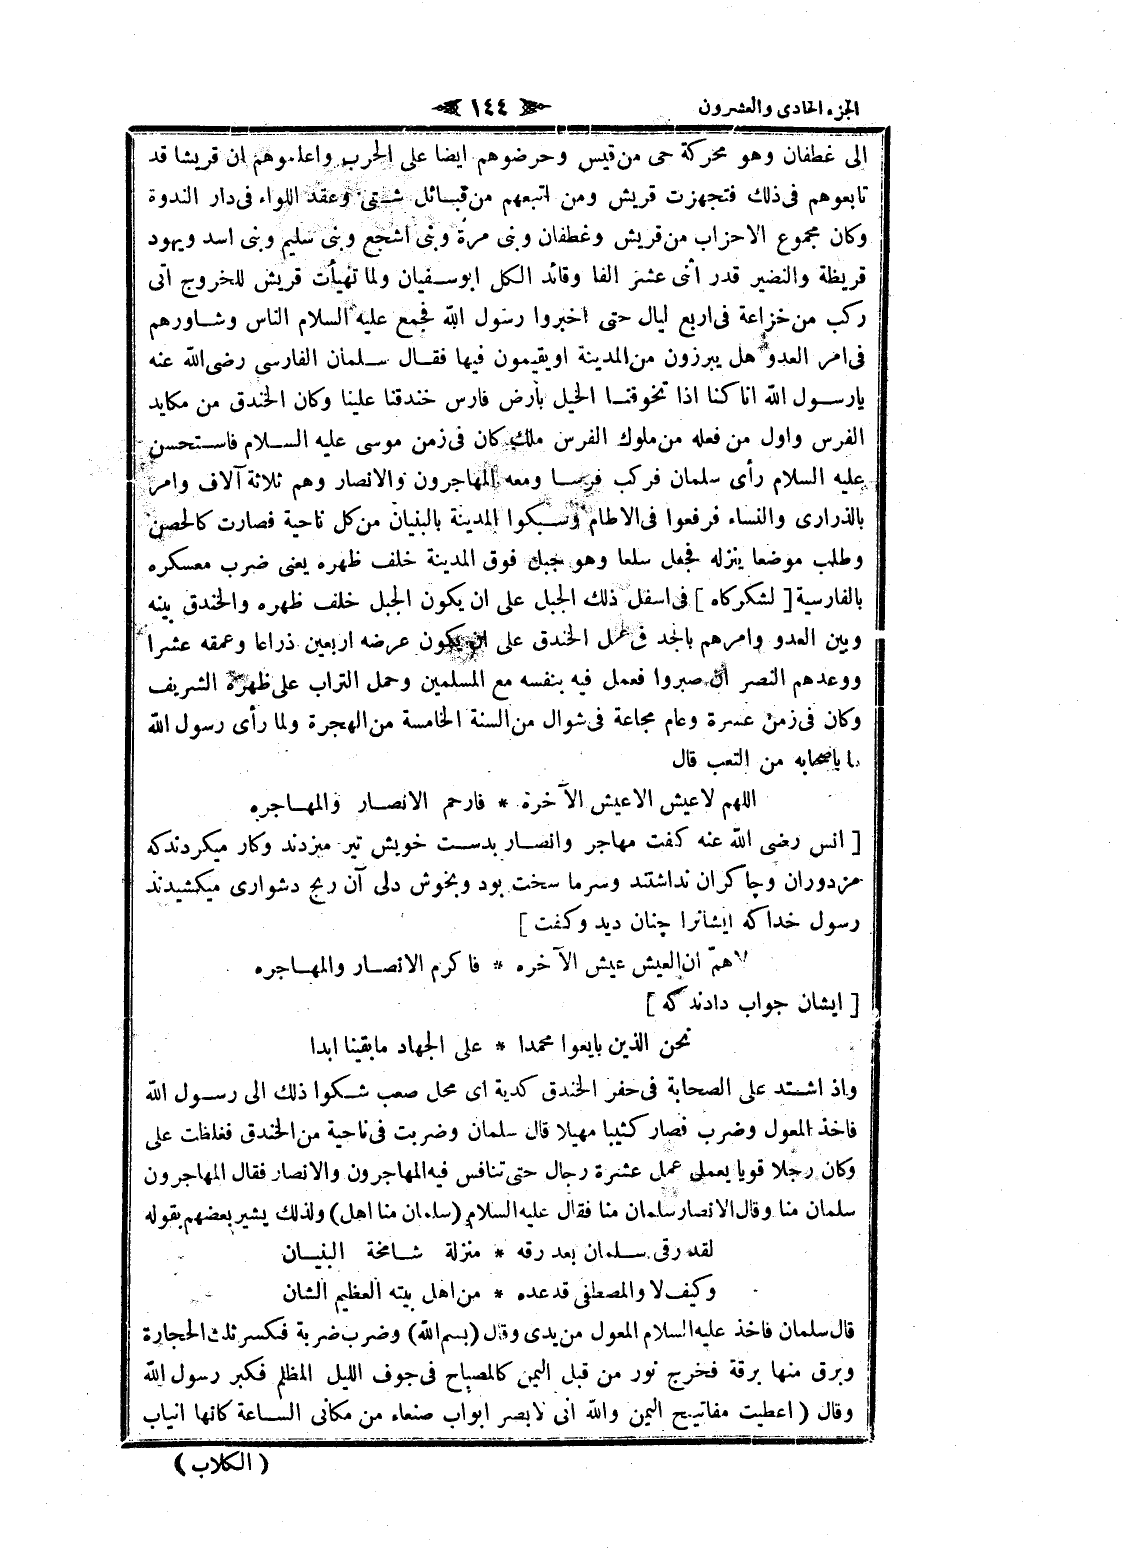 الجزء الحادى والعشرون
١٤٤
الى غطفان وهو محركة حى من قيس وحرضوهم ايضا على الحرب واعلموهم ان قريشا قد
تابعوهم فى ذلك فتجهزت قريش ومن اتبعهم من قبائل شتى وعقد اللواء فى دار الندوة
وكان مجموع الاحزاب من قريش وغطفان وبنى مرة وبنى اشجع وبنى سليم وبنى اسد ويهود
قريظة والنضير قدر اثنى عشر الفا وقائد الكل ابوسفيان ولما تهيأت قريش للخروج اتى
ركب من خزاعة فى اربع ليال حتى اخبروا رسول الله فجمع عليه السلام الناس وشاورهم
فى امر العدو هل يبرزون من المدينة اويقيمون فيها فقال سلمان الفارسى رضى الله عنه
يارسول الله انا كنا اذا تخوفنا الخيل بأرض فارس خندقنا علينا وكان الخندق من مكايد
الفرس واول من فعله من ملوك الفرس ملك كان فى زمن موسى عليه السلام فاستحسن
عليه السلام رأى سلمان فركب فرسا ومعه المهاجرون والانصار وهم ثلاثة آلاف وامر
بالذرارى والنساء فرفعوا فى الاطام وسبكوا المدينة بالبنيان من كل ناحية فصارت كالحصن
وطلب موضعا ينزله فجعل سلعا وهو جبل فوق المدينة خلف ظهره يعنى ضرب معسكره
بالفارسية [ لشكركاه ] فى اسفل ذلك الجبل على ان يكون الجبل خلف ظهره والخندق بينه
وبين العدو وامرهم بالجد فى عمل الخندق على ان يكون عرضه اربعين ذراعا وعمقه عشرا
ووعدهم النصر ان صبروا فعمل فيه بنفسه مع المسلمين وحمل التراب على ظهره الشريف
وكان فى زمن عسرة وعام مجاعة فى شوال من السنة الخامسة من الهجرة ولما رأى رسول الله
ما باصحابه من التعب قال
اللهم لاعيش الاعيش الآخرة * فارحم الانصار والمهاجره
[ انس رضى الله عنه كفت مهاجر وانصار بدست خويش تير ميزدند وكار ميكردند كه
مزدوران وچاكران نداشتند وسرما سخت بود وبخوش دلى آن رنج دشوارى ميكشيدند
رسول خدا كه ايشانرا چنان ديد وكفت ]
لاهمّ ان العيش عيش الآخره * فاكرم الانصار والمهاجره
[ ايشان جواب دادند كه ]
نحن الذين بايعوا محمدا * على الجهاد مابقينا ابدا
واذ اشتد على الصحابة فى حفر الخندق كدية اى محل صعب شكوا ذلك الى رسول الله
فاخذ المعول وضرب فصار كثيبا مهيلا قال سلمان وضربت فى ناحية من الخندق فغلظت على
وكان رجلا قويا يعمل عمل عشرة رجال حتى تنافس فيه المهاجرون والانصار فقال المهاجرون
سلمان منا وقال الانصار سلمان منا فقال عليه السلام (سلمان منا اهل) ولذلك يشير بعضهم بقوله
لقد رقى سلمان بعد رقه * منزلة شامخة البنيان
وكيف لا والمصطفى قد عده * من اهل بيته العظيم الشان
قال سلمان فاخذ عليه السلام المعول من يدى وقال (بسم الله) وضرب ضربة فكسر ثلث الحجارة
وبرق منها برقة فخرج نور من قبل اليمن كالمصباح فى جوف الليل المظلم فكبر رسول الله
وقال (اعطيت مفاتيح اليمن والله انى لابصر ابواب صنعاء من مكانى الساعة كانها انياب
(الكلاب)